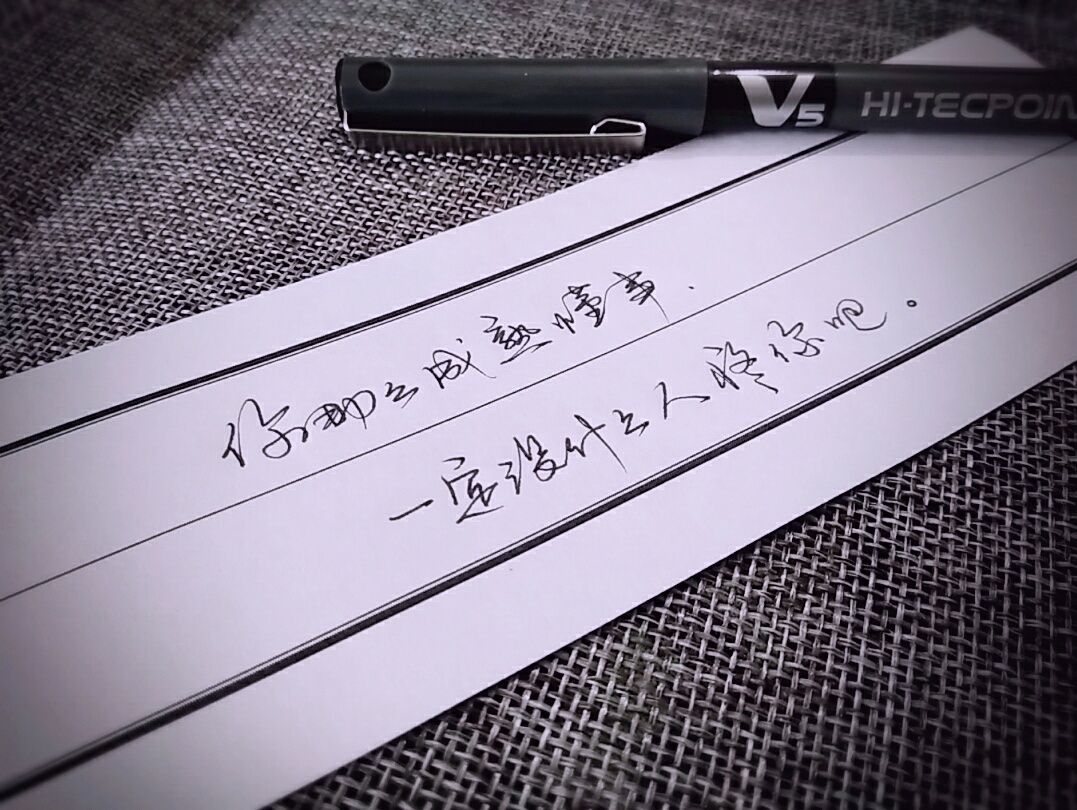 V5 HI-TECPOIN
你那么成熟懂事.
一定没什么人疼你吧。